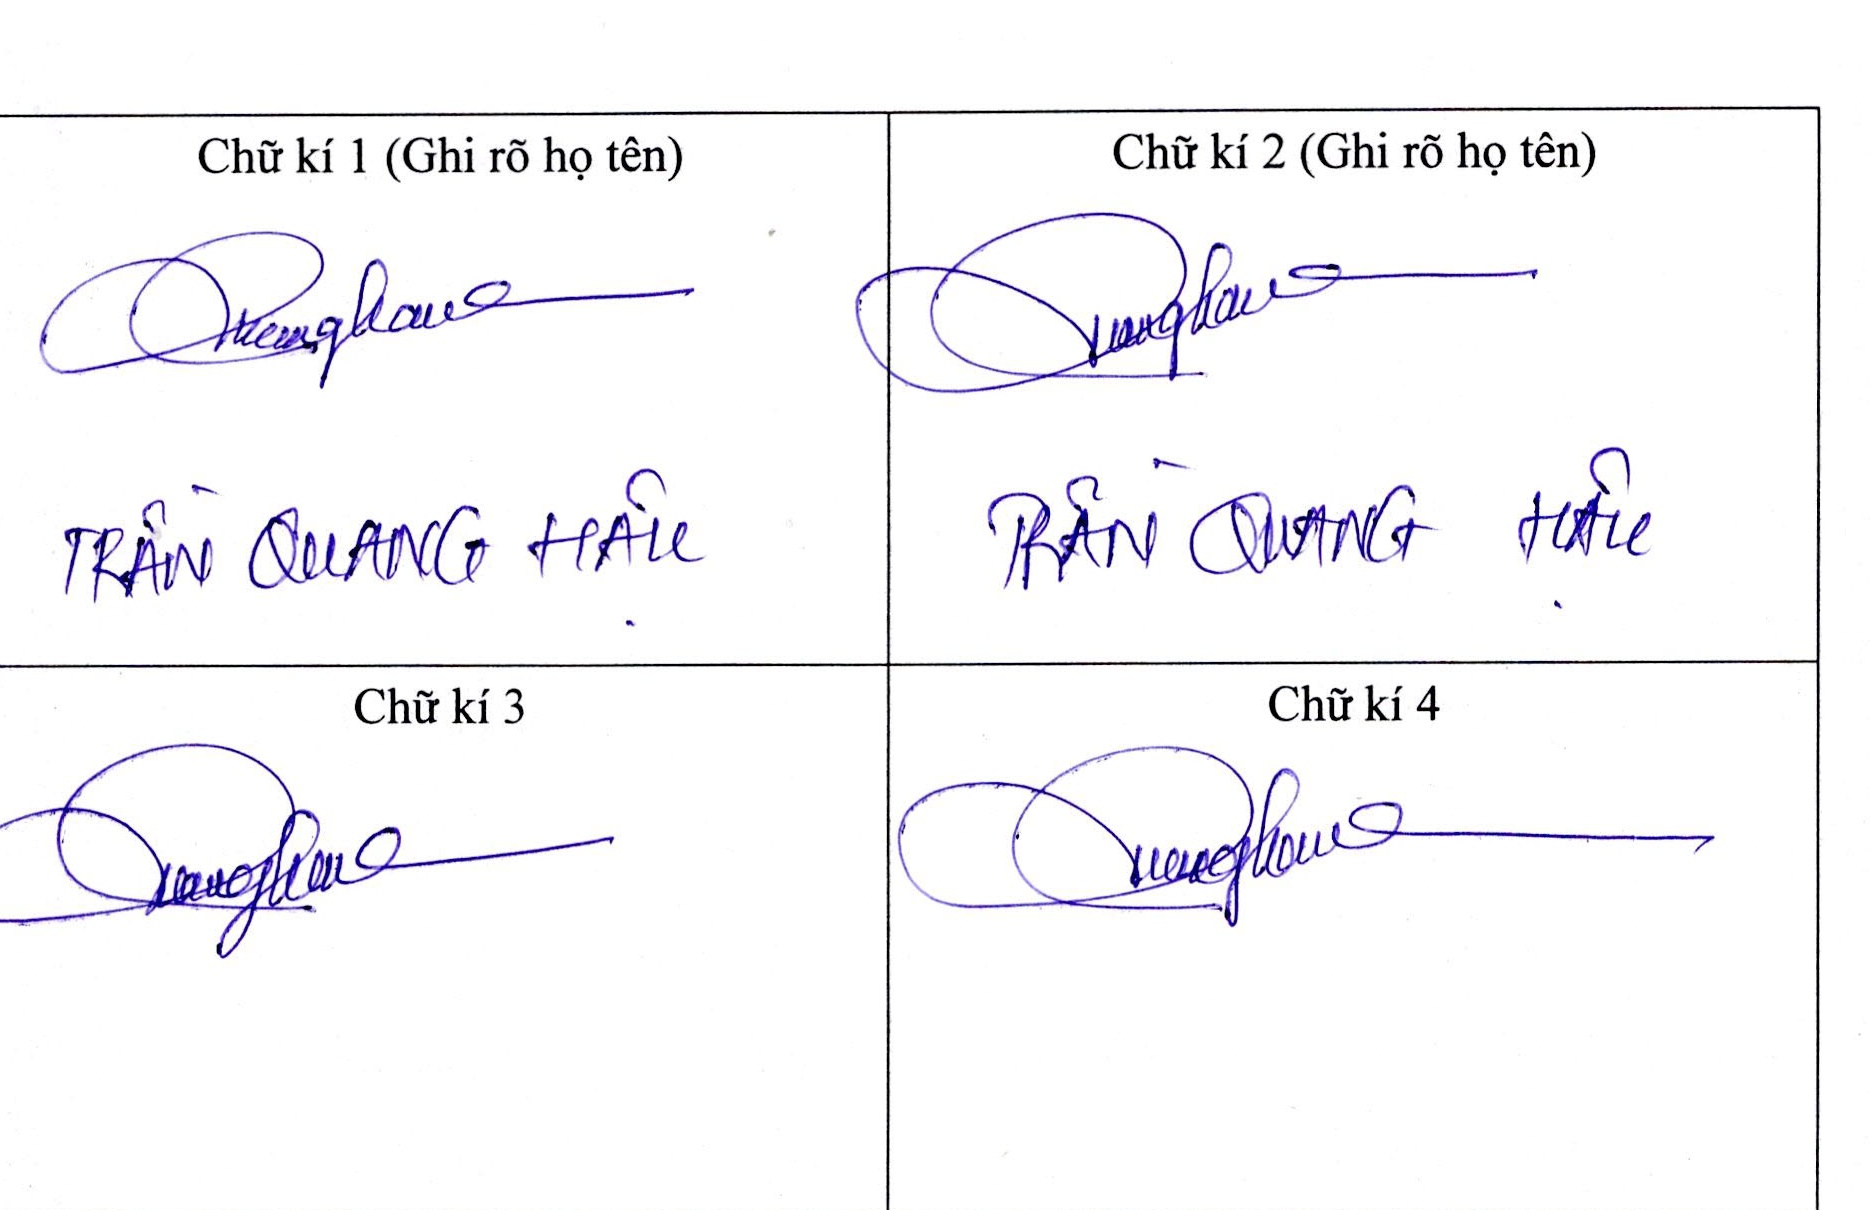 Chữ kí 1 (Ghi rõ họ tên)
Chữ kí 2 (Ghi rõ họ tên)
Quanghau
Quanghau
TRẦN QUANG HẬU
TRẦN QUANG HẬU
Chữ kí 3
Chữ kí 4
Quanghau
Quanghau